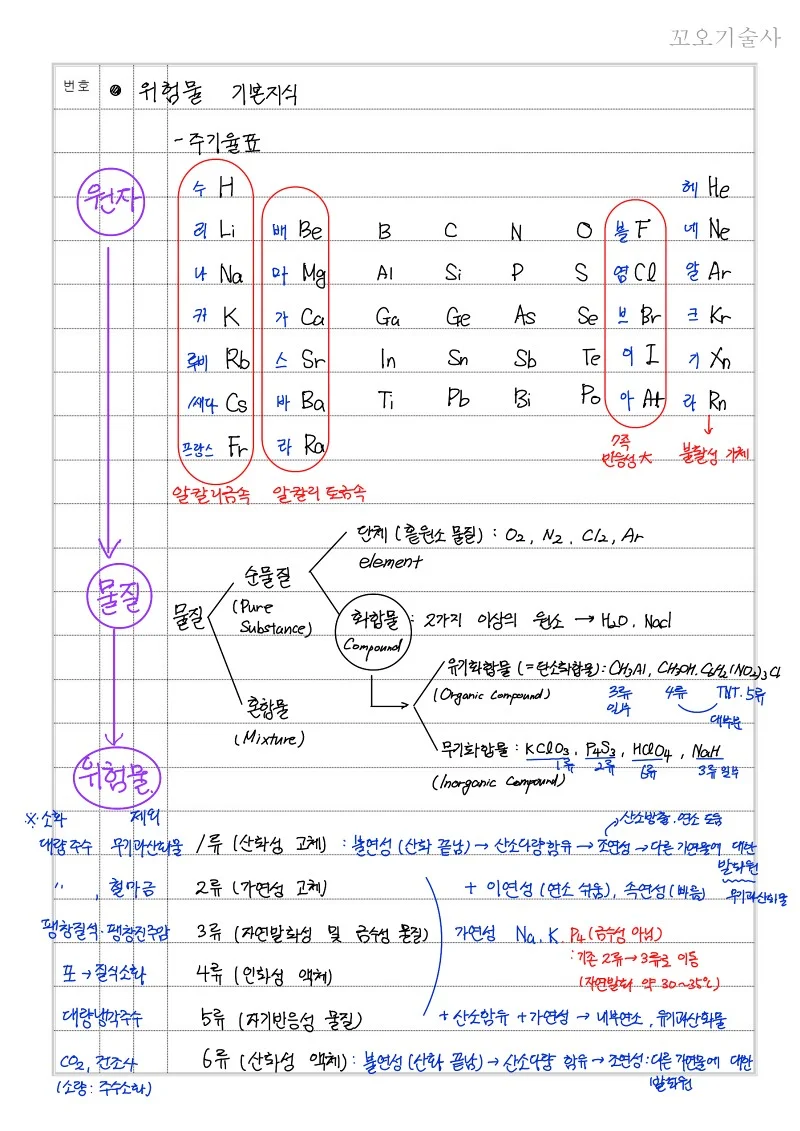 꼬오기술사
번호 위험물 기본지식
- 주기율표
원자
수 H 헤 He
리 Li 배 Be B C N O 불 F 네 Ne
나 Na 마 Mg Al Si P S 염 Cl 알 Ar
커 K 가 Ca Ga Ge As Se 브 Br 크 Kr
루비 Rb 스 Sr In Sn Sb Te 이 I 기 Xn
Cs 바 Ba Ti Pb Bi Po 아 At 라 Rn
프랑스 Fr 라 Ra
7족
반응성 大 불활성 기체
알칼리금속 알칼리 토금속
단체 (홑원소 물질) : O2, N2, Cl2, Ar
element
순물질
(Pure Substance)
물질
물질
화합물 : 2가지 이상의 원소 → H2O, Nacl
Compound
유기화합물 (=탄소화합물) : CH3Al, CH3OH, C6H2(NO2)3C
(Organic Compound) 3류 일부 4류 TNT·5류
대부분
혼합물
(Mixture)
무기화합물 : KClO3, P4S3, HClO4, NaH
(Inorganic Compound) 1류 2류 6류 3류 일부
위험물
※소화 제외
산소방출·연소 도움
대량주수 무기과산화물 1류 (산화성 고체) : 불연성 (산화 끝남) → 산소다량함유 → 조연성 → 다른 가연물에 대한
발화원
〃 , 철마금 2류 (가연성 고체) + 이연성 (연소 쉬움), 속연성 (빠름) 무기과산화물
팽창질석·팽창진주암 3류 (자연발화성 및 금수성 물질) 가연성 Na, K, P4 (금수성 아님)
: 기존 2류 → 3류로 이동
포 → 질식소화 4류 (인화성 액체) (자연발화 약 30~35℃)
대량냉각주수 5류 (자기반응성 물질) + 산소함유 + 가연성 → 내부연소, 유기과산화물
CO2, 건조사 6류 (산화성 액체) : 불연성 (산화 끝남) → 산소다량 함유 → 조연성 : 다른 가연물에 대한
(소량 : 주수소화) 발화원